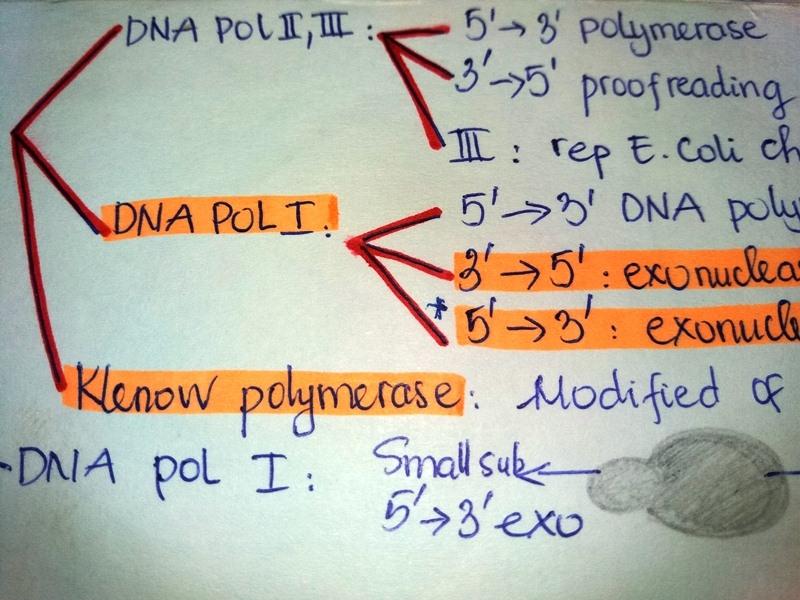 DNA Pol II, III :
5' → 3' polymerase
3' → 5' proofreading
III : rep E. Coli ch
DNA POL I :
5' → 3' DNA poly
3' → 5' : exonuclea
* 5' → 3' : exonucle
Klenow polymerase : Modified of
DNA pol I : Small sub
5' → 3' exo